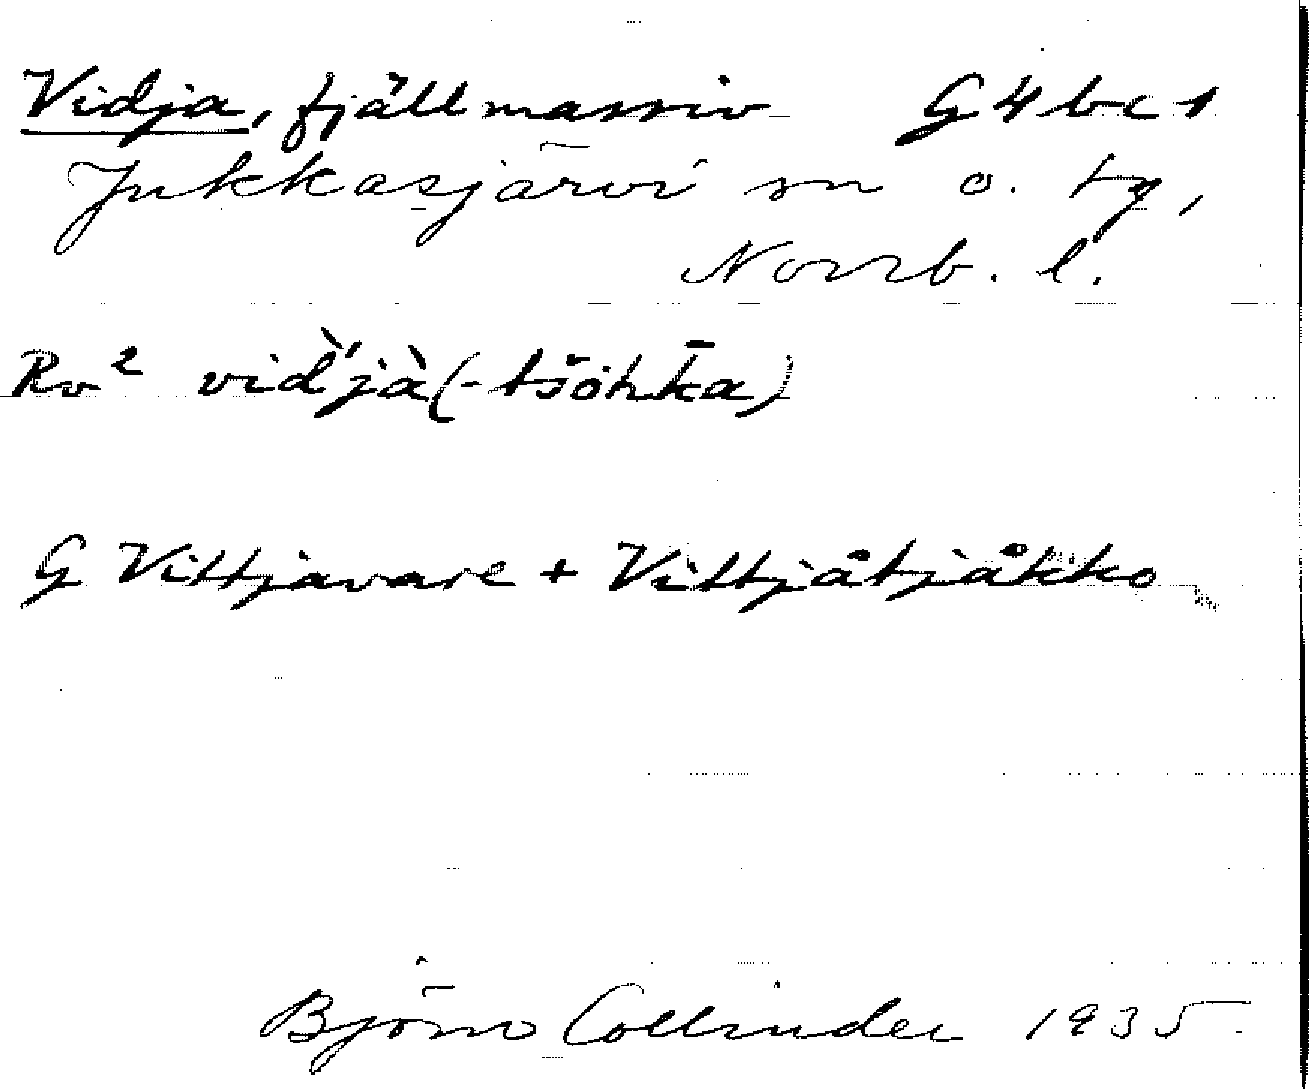 Vidja, fjällmassiv G4bc1
Jukkasjärvi sn o. tg,
Norrb. l.
Rv² vid̀'jà(-tšoh̄ka)
G Vittjavare + Vittjåtjåkko
Björn Collinder 1935.